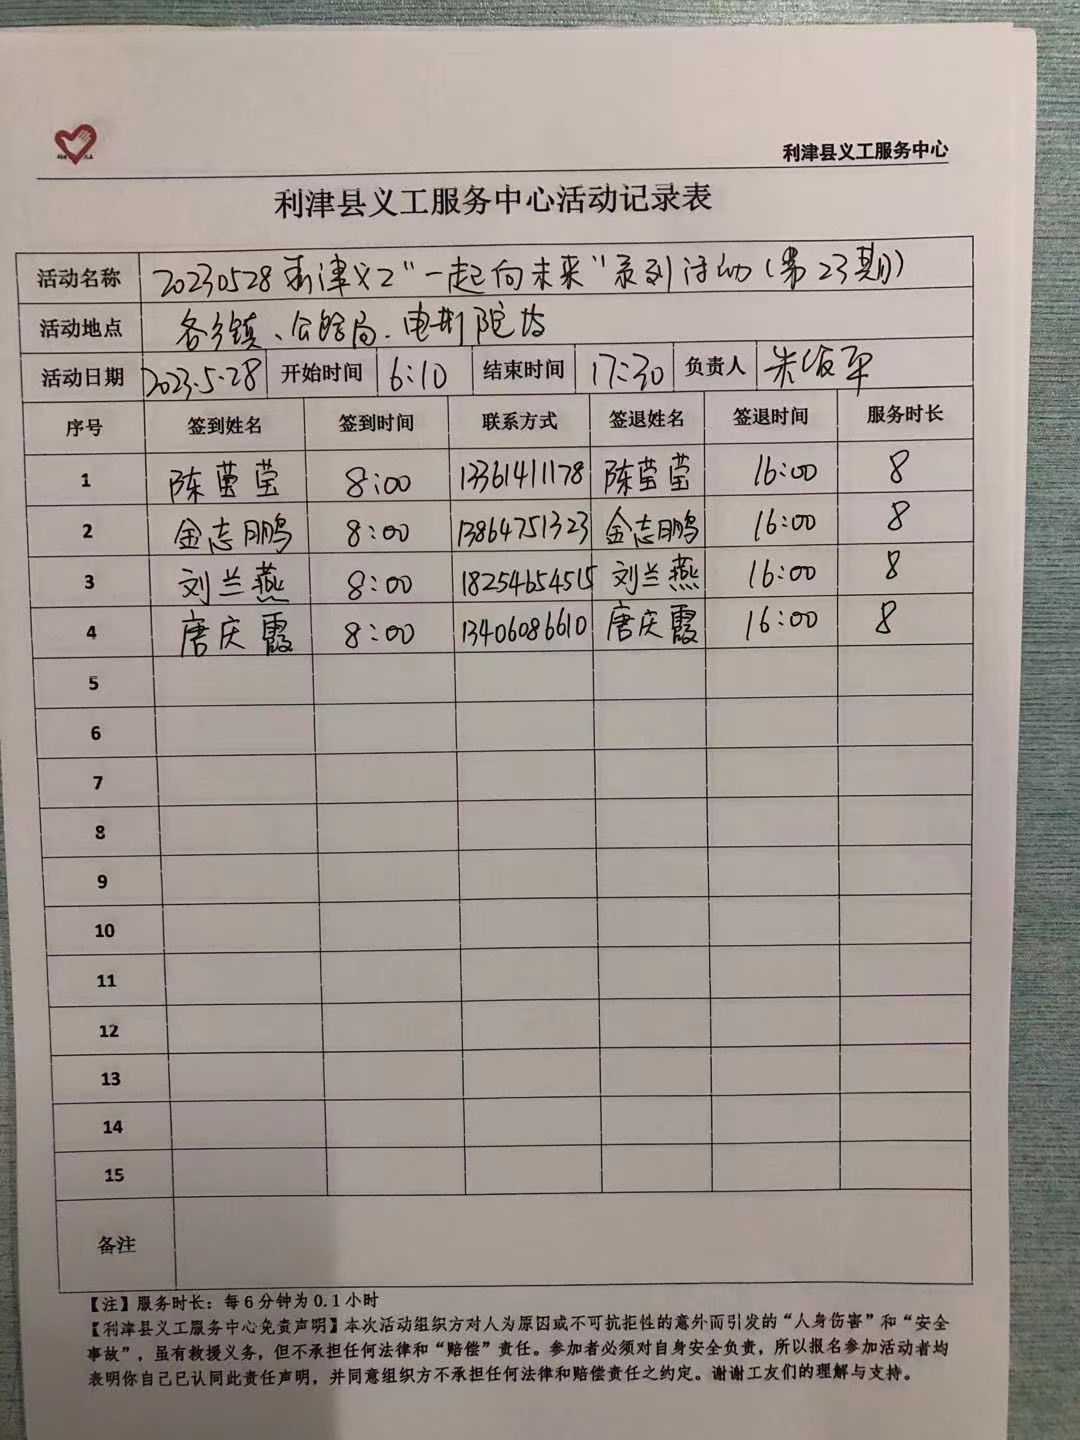 利津县义工服务中心
利津县义工服务中心活动记录表
活动名称 20230528利津义工“一起向未来”系列活动(第23期)
活动地点 各乡镇、公路局、电影院等
活动日期 2023.5.28 开始时间 6:10 结束时间 17:30 负责人
序号 签到姓名 签到时间 联系方式 签退姓名 签退时间 服务时长
1 陈莹莹 8:00 13361411178 陈莹莹 16:00 8
2 金志鹏 8:00 13864751323 金志鹏 16:00 8
3 刘兰燕 8:00 18254654515 刘兰燕 16:00 8
4 唐庆霞 8:00 13406086610 唐庆霞 16:00 8
5
6
7
8
9
10
11
12
13
14
15
备注
【注】服务时长：每6分钟为0.1小时
【利津县义工服务中心免责声明】本次活动组织方对人为原因或不可抗拒性的意外而引发的“人身伤害”和“安全
事故”，虽有救援义务，但不承担任何法律和“赔偿”责任。参加者必须对自身安全负责，所以报名参加活动者均
表明你自己已认同此责任声明，并同意组织方不承担任何法律和赔偿责任之约定。谢谢工友们的理解与支持。